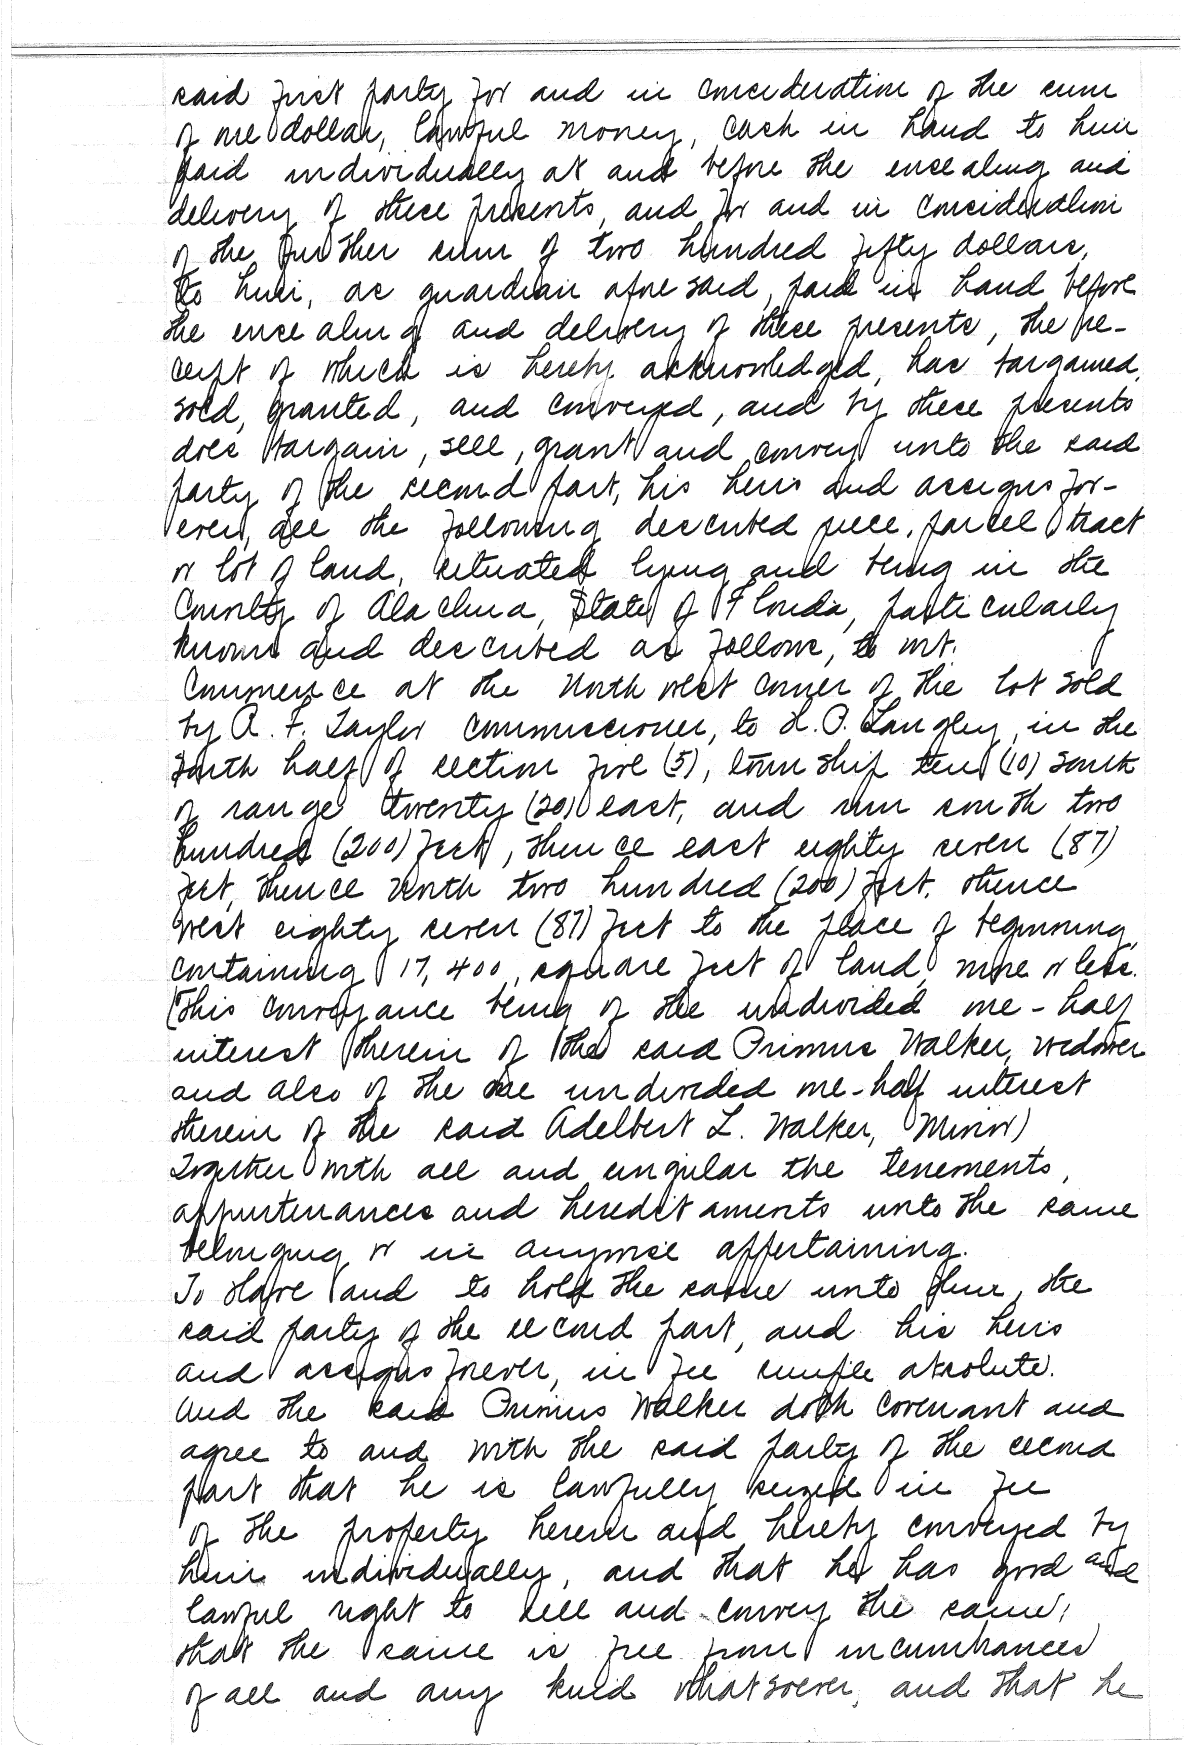 said first party for and in consideration of the sum
of one dollar, lawful money, cash in hand to him
paid individually at and before the ensealing and
delivery of these presents, and for and in consideration
of the further sum of two hundred fifty dollars,
to him, as guardian aforesaid, paid in hand before
the ensealing and delivery of these presents, the re-
ceipt of which is hereby acknowledged, has bargained,
sold, granted, and conveyed, and by these presents
does bargain, sell, grant and convey unto the said
party of the second part, his heirs and assigns for-
ever, all the following described piece, parcel tract
or lot of land, situated lying and being in the
County of Alachua, State of Florida, particularly
known and described as follows, to wit.
Commence at the North west corner of the lot sold
by A. F. Taylor Commissioner, to L. O. Langley, in the
South half of section five (5), township ten (10) South
of range twenty (20) east, and run south two
hundred (200) feet, thence east eighty seven (87)
feet, thence north two hundred (200) feet. thence
west eighty seven (87) feet to the place of beginning,
containing 17,400, square feet of land, more or less.
(This conveyance being of the undivided one-half
interest therein of the said Primus Walker, widower
and also of the one undivided one-half interest
therein of the said Adelbert L. Walker, Minor)
Together with all and singular the tenements,
appurtenances and hereditaments unto the same
belonging or in anywise appertaining.
To Have and to hold the same unto him, the
said party of the second part, and his heirs
and assigns forever, in fee simple absolute.
And the said Primus Walker doth covenant and
agree to and with the said party of the second
part that he is lawfully seized in fee
of the property herein and hereby conveyed by
him individually, and that he has good and
lawful right to sell and convey the same,
that the same is free from incumbrances
of all and any kind whatsoever, and that he